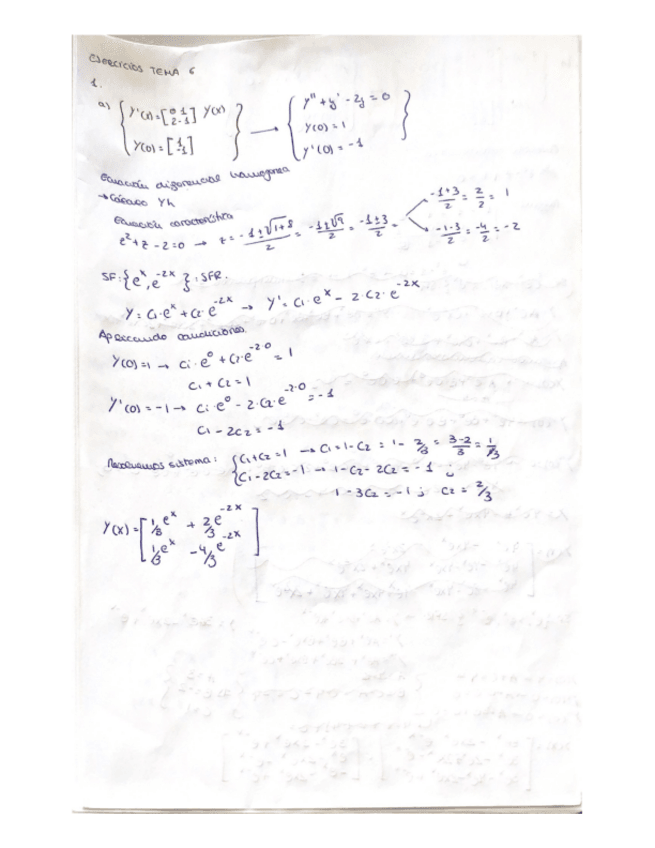 EJERCICIOS TEMA 6
1.
a) { Y'(x) = [0 1 2 -1] Y(x) } → { y'' + y' - 2y = 0
Y(0) = [1 -1] y(0) = 1
y'(0) = -1 }
Ecuación diferencial homogenea
→ Cálculo Yh
Ecuación característica
z² + z - 2 = 0 → z = -1 ± √1+8 / 2 = -1 ± √9 / 2 = -1 ± 3 / 2 = -1+3 / 2 = 2/2 = 1
-1-3 / 2 = -4/2 = -2
SF: {e^x, e^-2x} : SFR.
Y = C1·e^x + C2·e^-2x → Y' = C1·e^x - 2·C2·e^-2x
Aplicando condiciones.
Y(0) = 1 → C1·e^0 + C2·e^-2·0 = 1
C1 + C2 = 1
Y'(0) = -1 → C1·e^0 - 2·C2·e^-2·0 = -1
C1 - 2C2 = -1
Resolvemos sistema: { C1 + C2 = 1 → C1 = 1 - C2 = 1 - 2/3 = 3-2 / 3 = 1/3
C1 - 2C2 = -1 → 1 - C2 - 2C2 = -1 ;
1 - 3C2 = -1 ; C2 = 2/3
Y(x) = [ 1/3 e^x + 2/3 e^-2x
1/3 e^x - 4/3 e^-2x ]